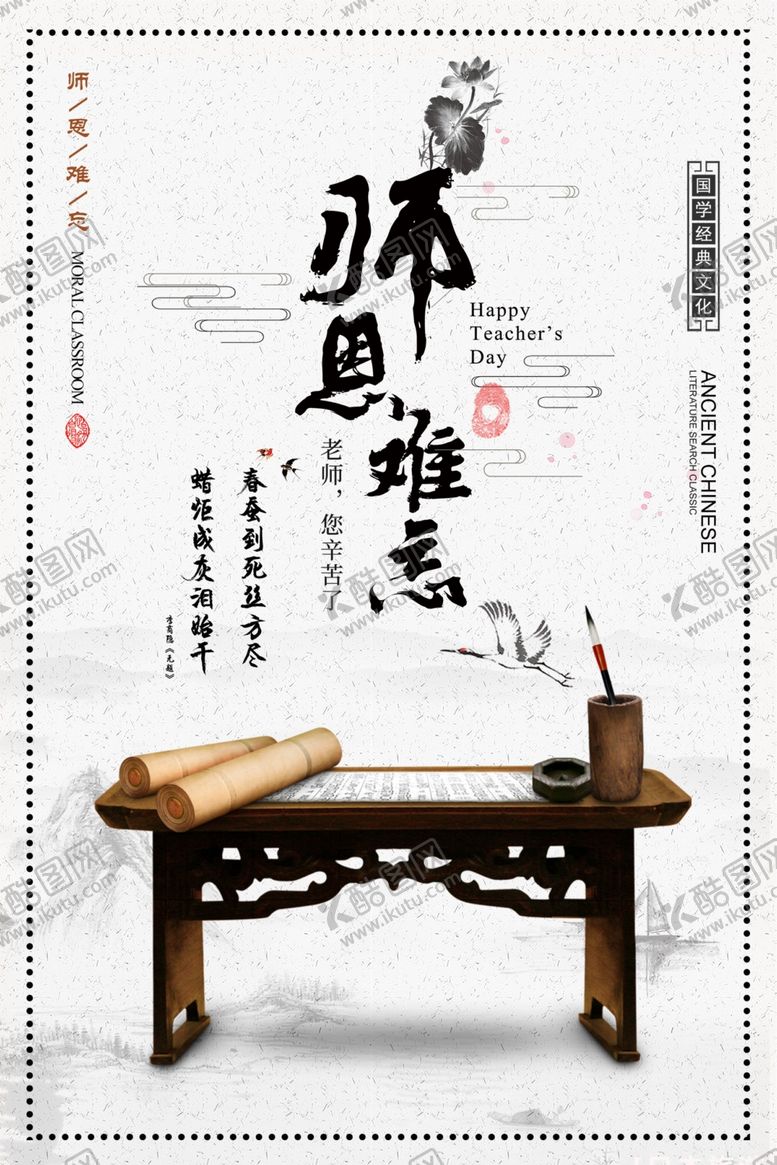 师/恩/难/忘
MORAL CLASSROOM
师恩难忘
Happy
Teacher's
Day
老师，您辛苦了
春蚕到死丝方尽
蜡炬成灰泪始干
李商隐《无题》
国学经典文化
ANCIENT CHINESE
LITERATURE SEARCH CLASSIC
酷图网
www.ikutu.com